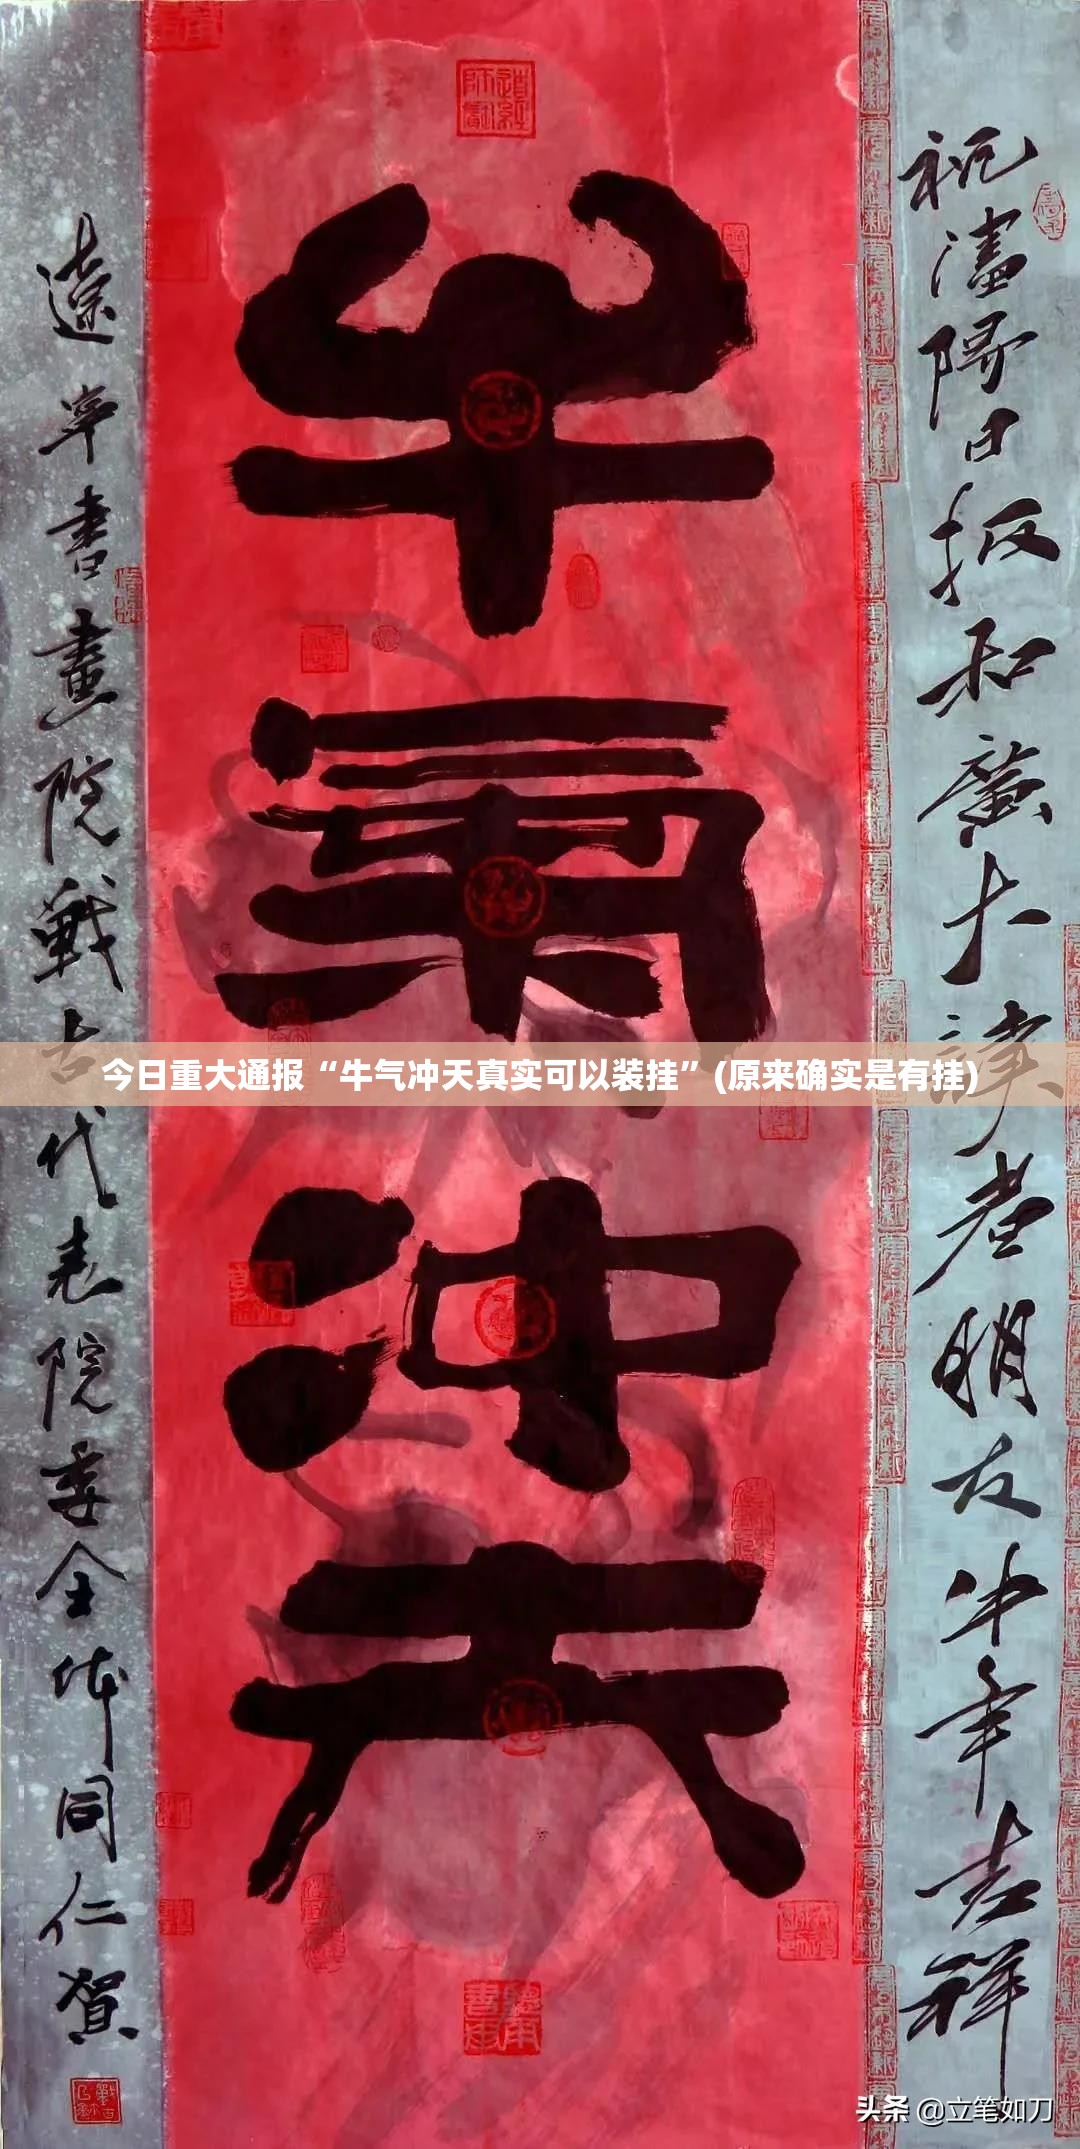 祝瀋陽日报和廣大讀者朋友牛年吉祥
牛氣冲天
遼寧書畫院戰古代表院委全体同仁賀
今日重大通报“牛气冲天真实可以装挂”(原来确实是有挂)
头条 @立笔如刀